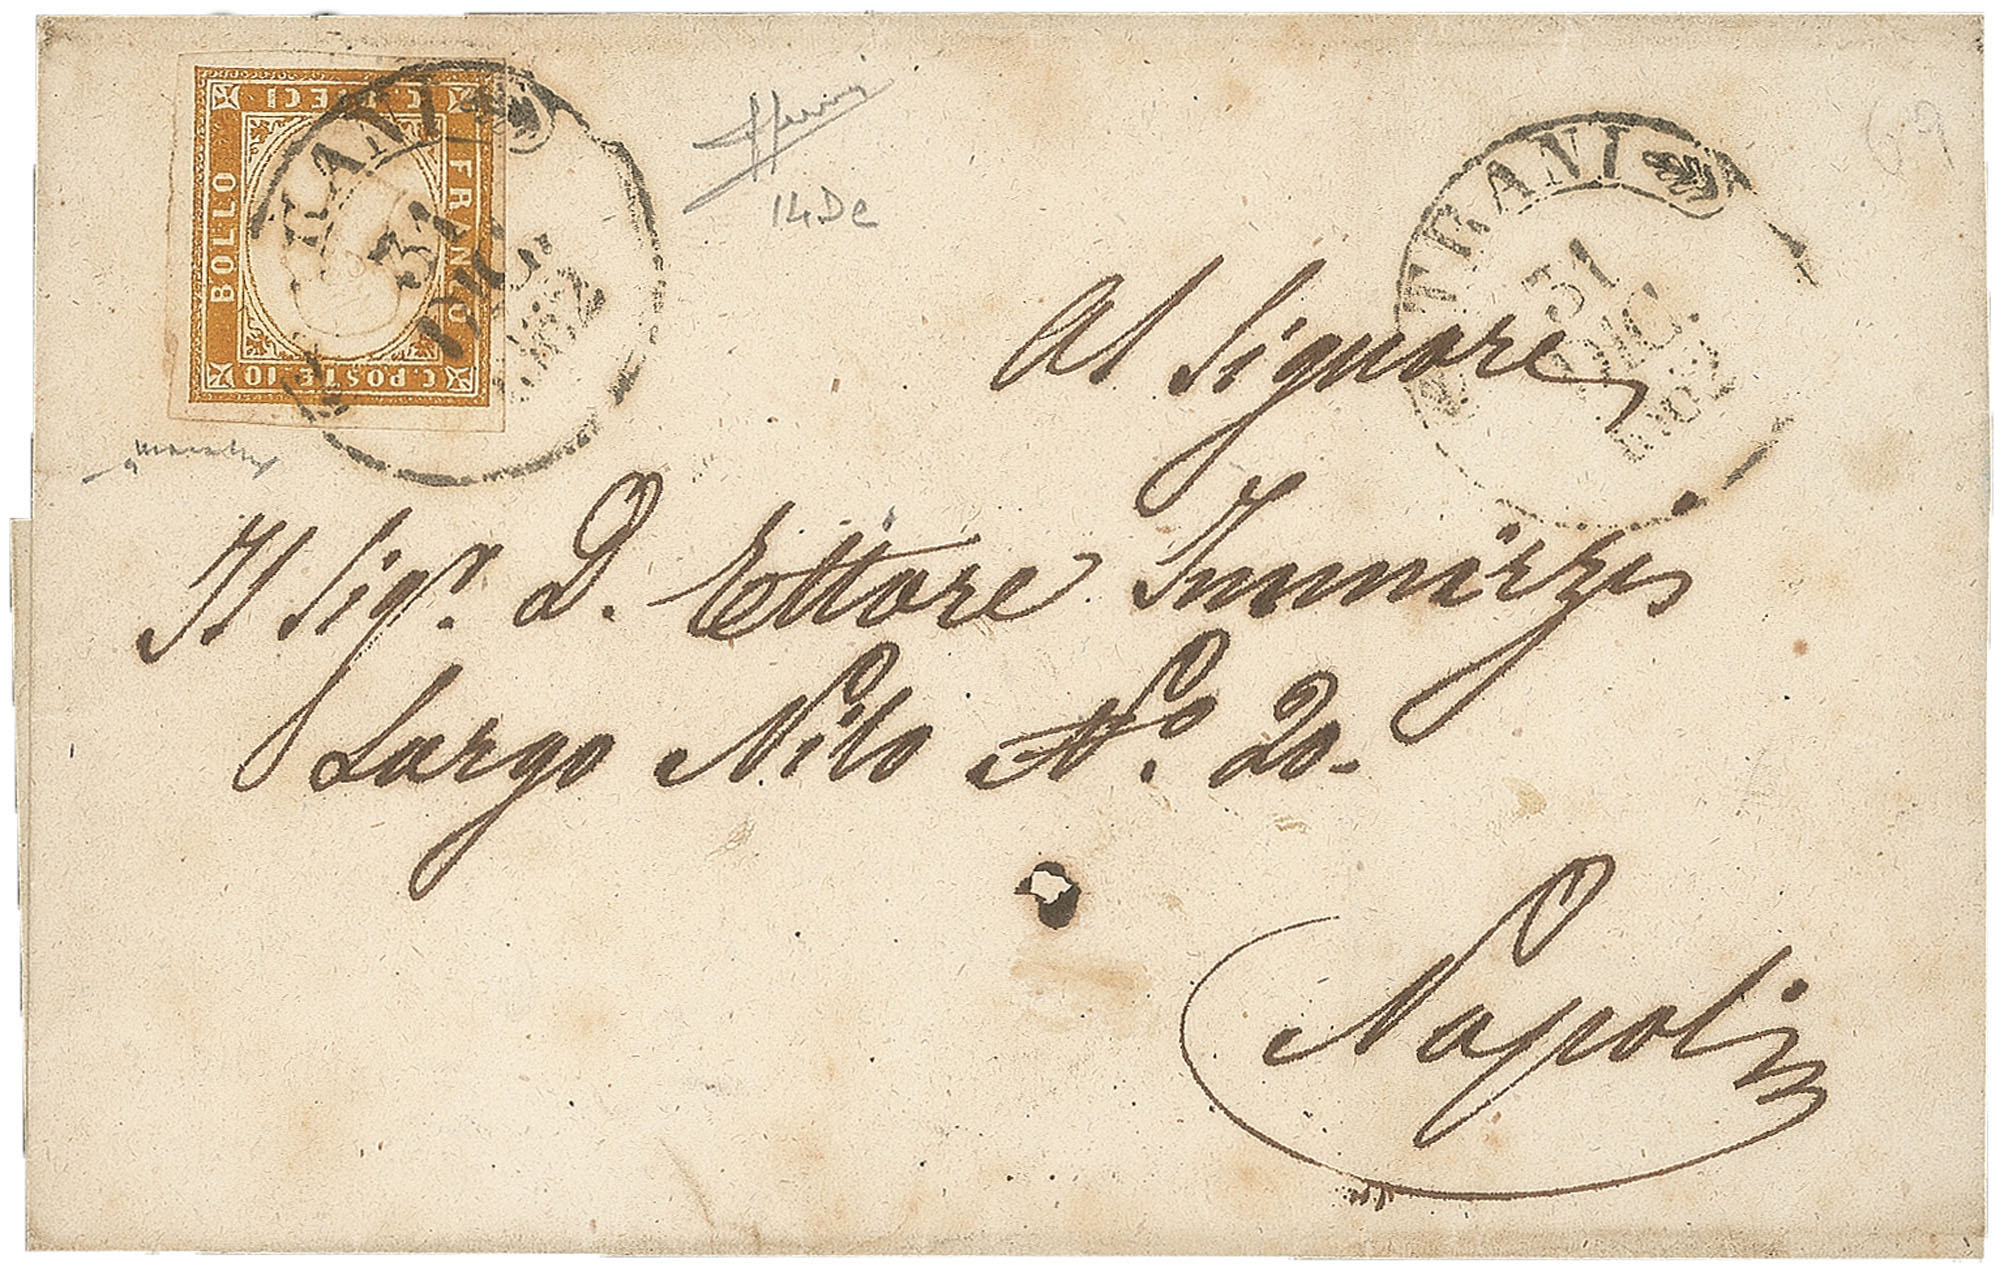 C. DIECI
BOLLO
FRANCO
C. POSTE. 10
TRANI
31
DIC.
1862
14Dc
69
TRANI
31
DIC.
1862
Al Signore
Il Sigr. D. Ettore
Largo Nilo No. 20-
Napoli